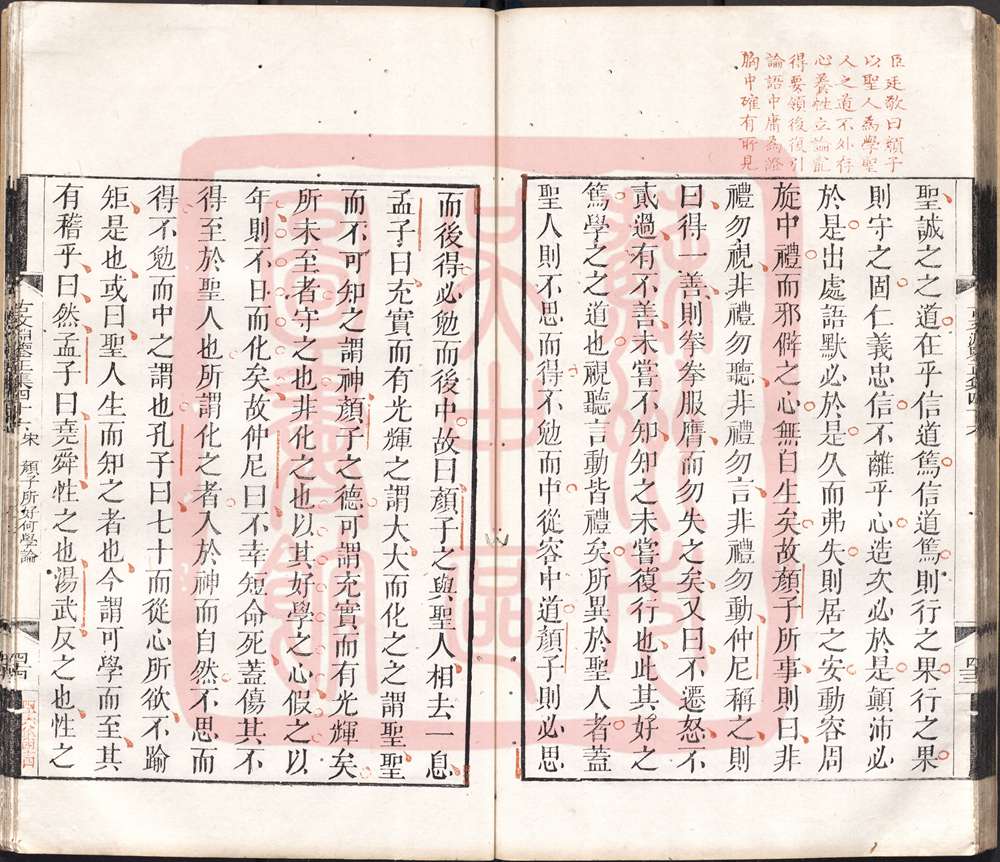 臣廷敬曰顔子
以聖人爲學聖
人之道不外存
心養性立論能
得要領後復引
論語中庸為證
胸中確有所見
聖誠之之道在乎信道篤信道篤則行之果行之果
則守之固仁義忠信不離乎心造次必於是顛沛必
於是出處語默必於是久而弗失則居之安動容周
旋中禮而邪僻之心無自生矣故顔子所事則曰非
禮勿視非禮勿聽非禮勿言非禮勿動仲尼稱之則
曰得一善則拳拳服膺而勿失之矣又曰不遷怒不
貳過有不善未嘗不知知之未嘗復行也此其好之
篤學之之道也視聽言動皆禮矣所異於聖人者蓋
聖人則不思而得不勉而中從容中道顔子則必思
而後得必勉而後中故曰顔子之與聖人相去一息
孟子曰充實而有光輝之謂大大而化之之謂聖聖
而不可知之謂神顔子之德可謂充實而有光輝矣
所未至者守之也非化之也以其好學之心假之以
年則不日而化矣故仲尼曰不幸短命死蓋傷其不
得至於聖人也所謂化之者入於神而自然不思而
得不勉而中之謂也孔子曰七十而從心所欲不踰
矩是也或曰聖人生而知之者也今謂可學而至其
有稽乎曰然孟子曰堯舜性之也湯武反之也性之
古文淵鑒正集四十一 宋 顔子所好何學論